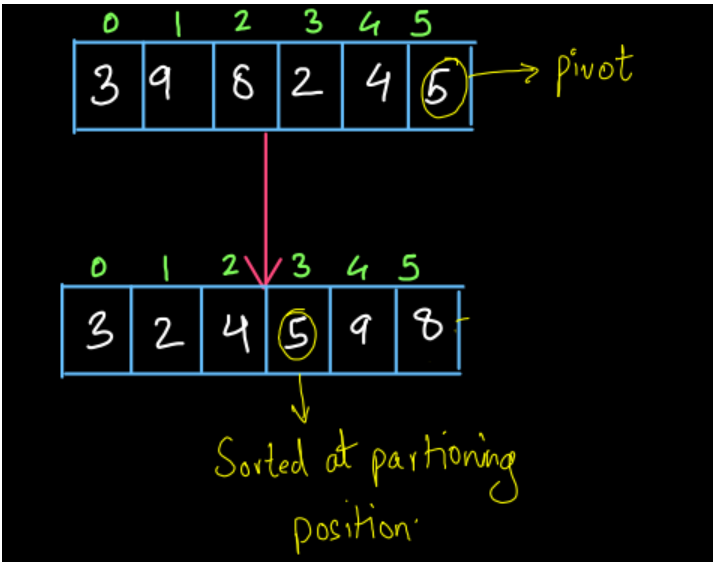 0 1 2 3 4 5
3 9 8 2 4 5 pivot
0 1 2 3 4 5
3 2 4 5 9 8
Sorted at partioning
position.